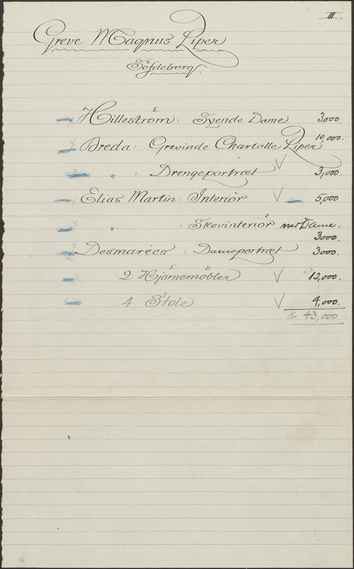 II
Greve Magnus Piper
Söfdeborg.
Hilleström: Syende Dame 3000
Breda: Grevinde Charlotte Piper 10,000
" Drengeportræt 3,000
Elias Martin Interiör 5,000
" Skovinteriör med Dame.
3000.
Desmarées: Dameportræt 3000.
2 Hjörnemöbler 12,000
4 Stole 4,000
43,000